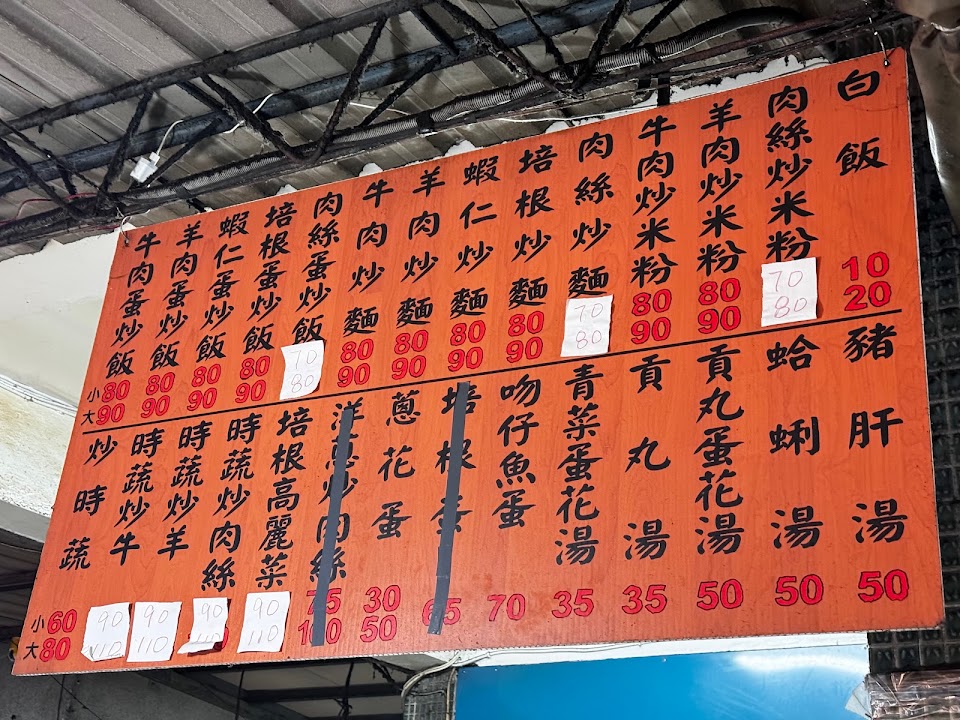 牛肉蛋炒飯 小80 大90
羊肉蛋炒飯 80 90
蝦仁蛋炒飯 80 90
培根蛋炒飯 80 90
肉絲蛋炒飯 70 80
牛肉炒麵 80 90
羊肉炒麵 80 90
蝦仁炒麵 80 90
培根炒麵 80 90
肉絲炒麵 70 80
牛肉炒米粉 80 90
羊肉炒米粉 80 90
肉絲炒米粉 70 80
白飯 10 20
炒時蔬 小60 大80
時蔬炒牛 90 110
時蔬炒羊 90 110
時蔬炒肉絲 90 110
培根高麗菜 90 110
洋蔥炒肉絲 75 100
蔥花蛋 30 50
培根蛋 65
吻仔魚蛋 70
青菜蛋花湯 35
貢丸湯 35
貢丸蛋花湯 50
蛤蜊湯 50
豬肝湯 50